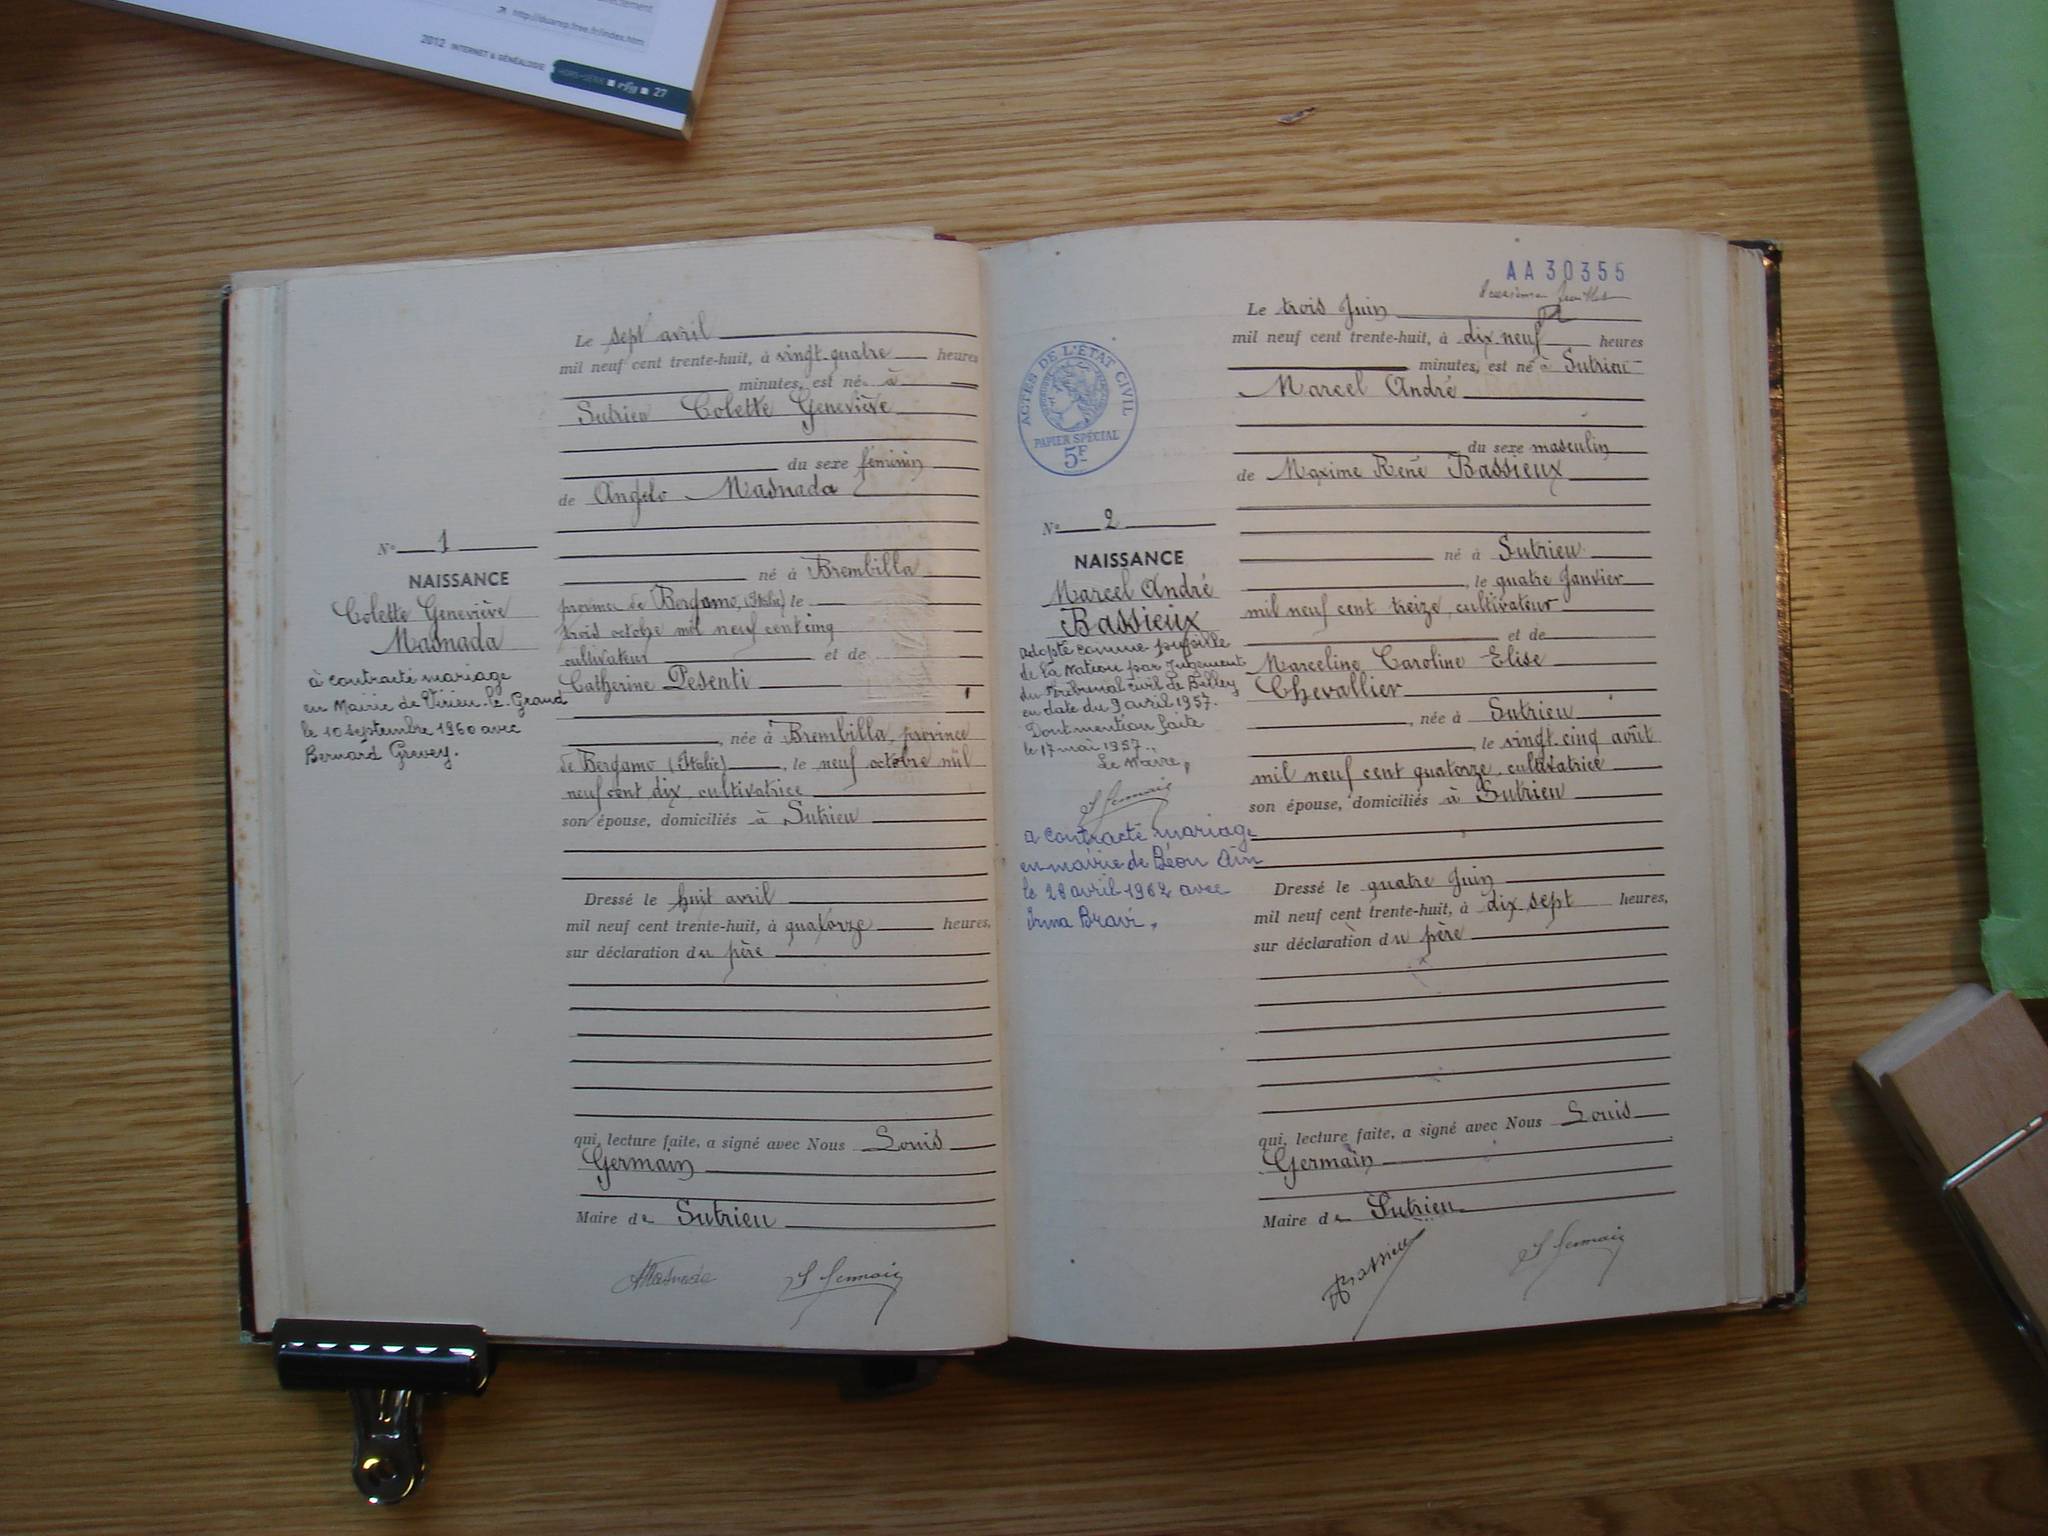 http://duarep.free.fr/index.htm
2012 INTERNET & GÉNÉALOGIE
HORS-SÉRIE rfg 27
Le sept avril
mil neuf cent trente-huit, à vingt quatre heures
minutes, est née à
Sutrieu Colette Geneviève
du sexe féminin
de Angelo Masnada
N° 1
NAISSANCE
Colette Geneviève
Masnada
à contracté mariage
en Mairie de Virieu-le-Grand
le 10 septembre 1960 avec
Bernard Grevey.
né à Brembilla
province de Bergamo, (Italie) le
trois octobre mil neuf cent cinq
cultivateur et de
Catherine Pesenti
, née à Brembilla, province
de Bergamo (Italie), le neuf octobre mil
neuf cent dix, cultivatrice
son épouse, domiciliés à Sutrieu
Dressé le huit avril
mil neuf cent trente-huit, à quatorze heures,
sur déclaration du père
qui, lecture faite, a signé avec Nous Louis
Germain
Maire de Sutrieu
Masnada
L Germain
AA30355
Le trois Juin
mil neuf cent trente-huit, à dix neuf heures
minutes, est né à Sutrieu
Marcel André
du sexe masculin
de Maxime René Bassieux
ACTES DE L'ÉTAT CIVIL
PAPIER SPÉCIAL
5F
N° 2
NAISSANCE
Marcel André
Bassieux
adopté comme pupille
de la Nation par Jugement
du Tribunal civil de Belley
en date du 9 avril 1957.
Dont mention faite
le 17 mai 1957.
Le Maire,
L Germain
a contracté mariage
en mairie de Béon Ain
le 28 avril 1962 avec
Irma Bravi.
né à Sutrieu
, le quatre Janvier
mil neuf cent treize, cultivateur
et de
Marceline Caroline Elise
Chevallier
, née à Sutrieu
, le vingt cinq août
mil neuf cent quatorze, cultivatrice
son épouse, domiciliés à Sutrieu
Dressé le quatre Juin
mil neuf cent trente-huit, à dix sept heures,
sur déclaration du père
qui, lecture faite, a signé avec Nous Louis
Germain
Maire de Sutrieu
Bassieux
L Germain